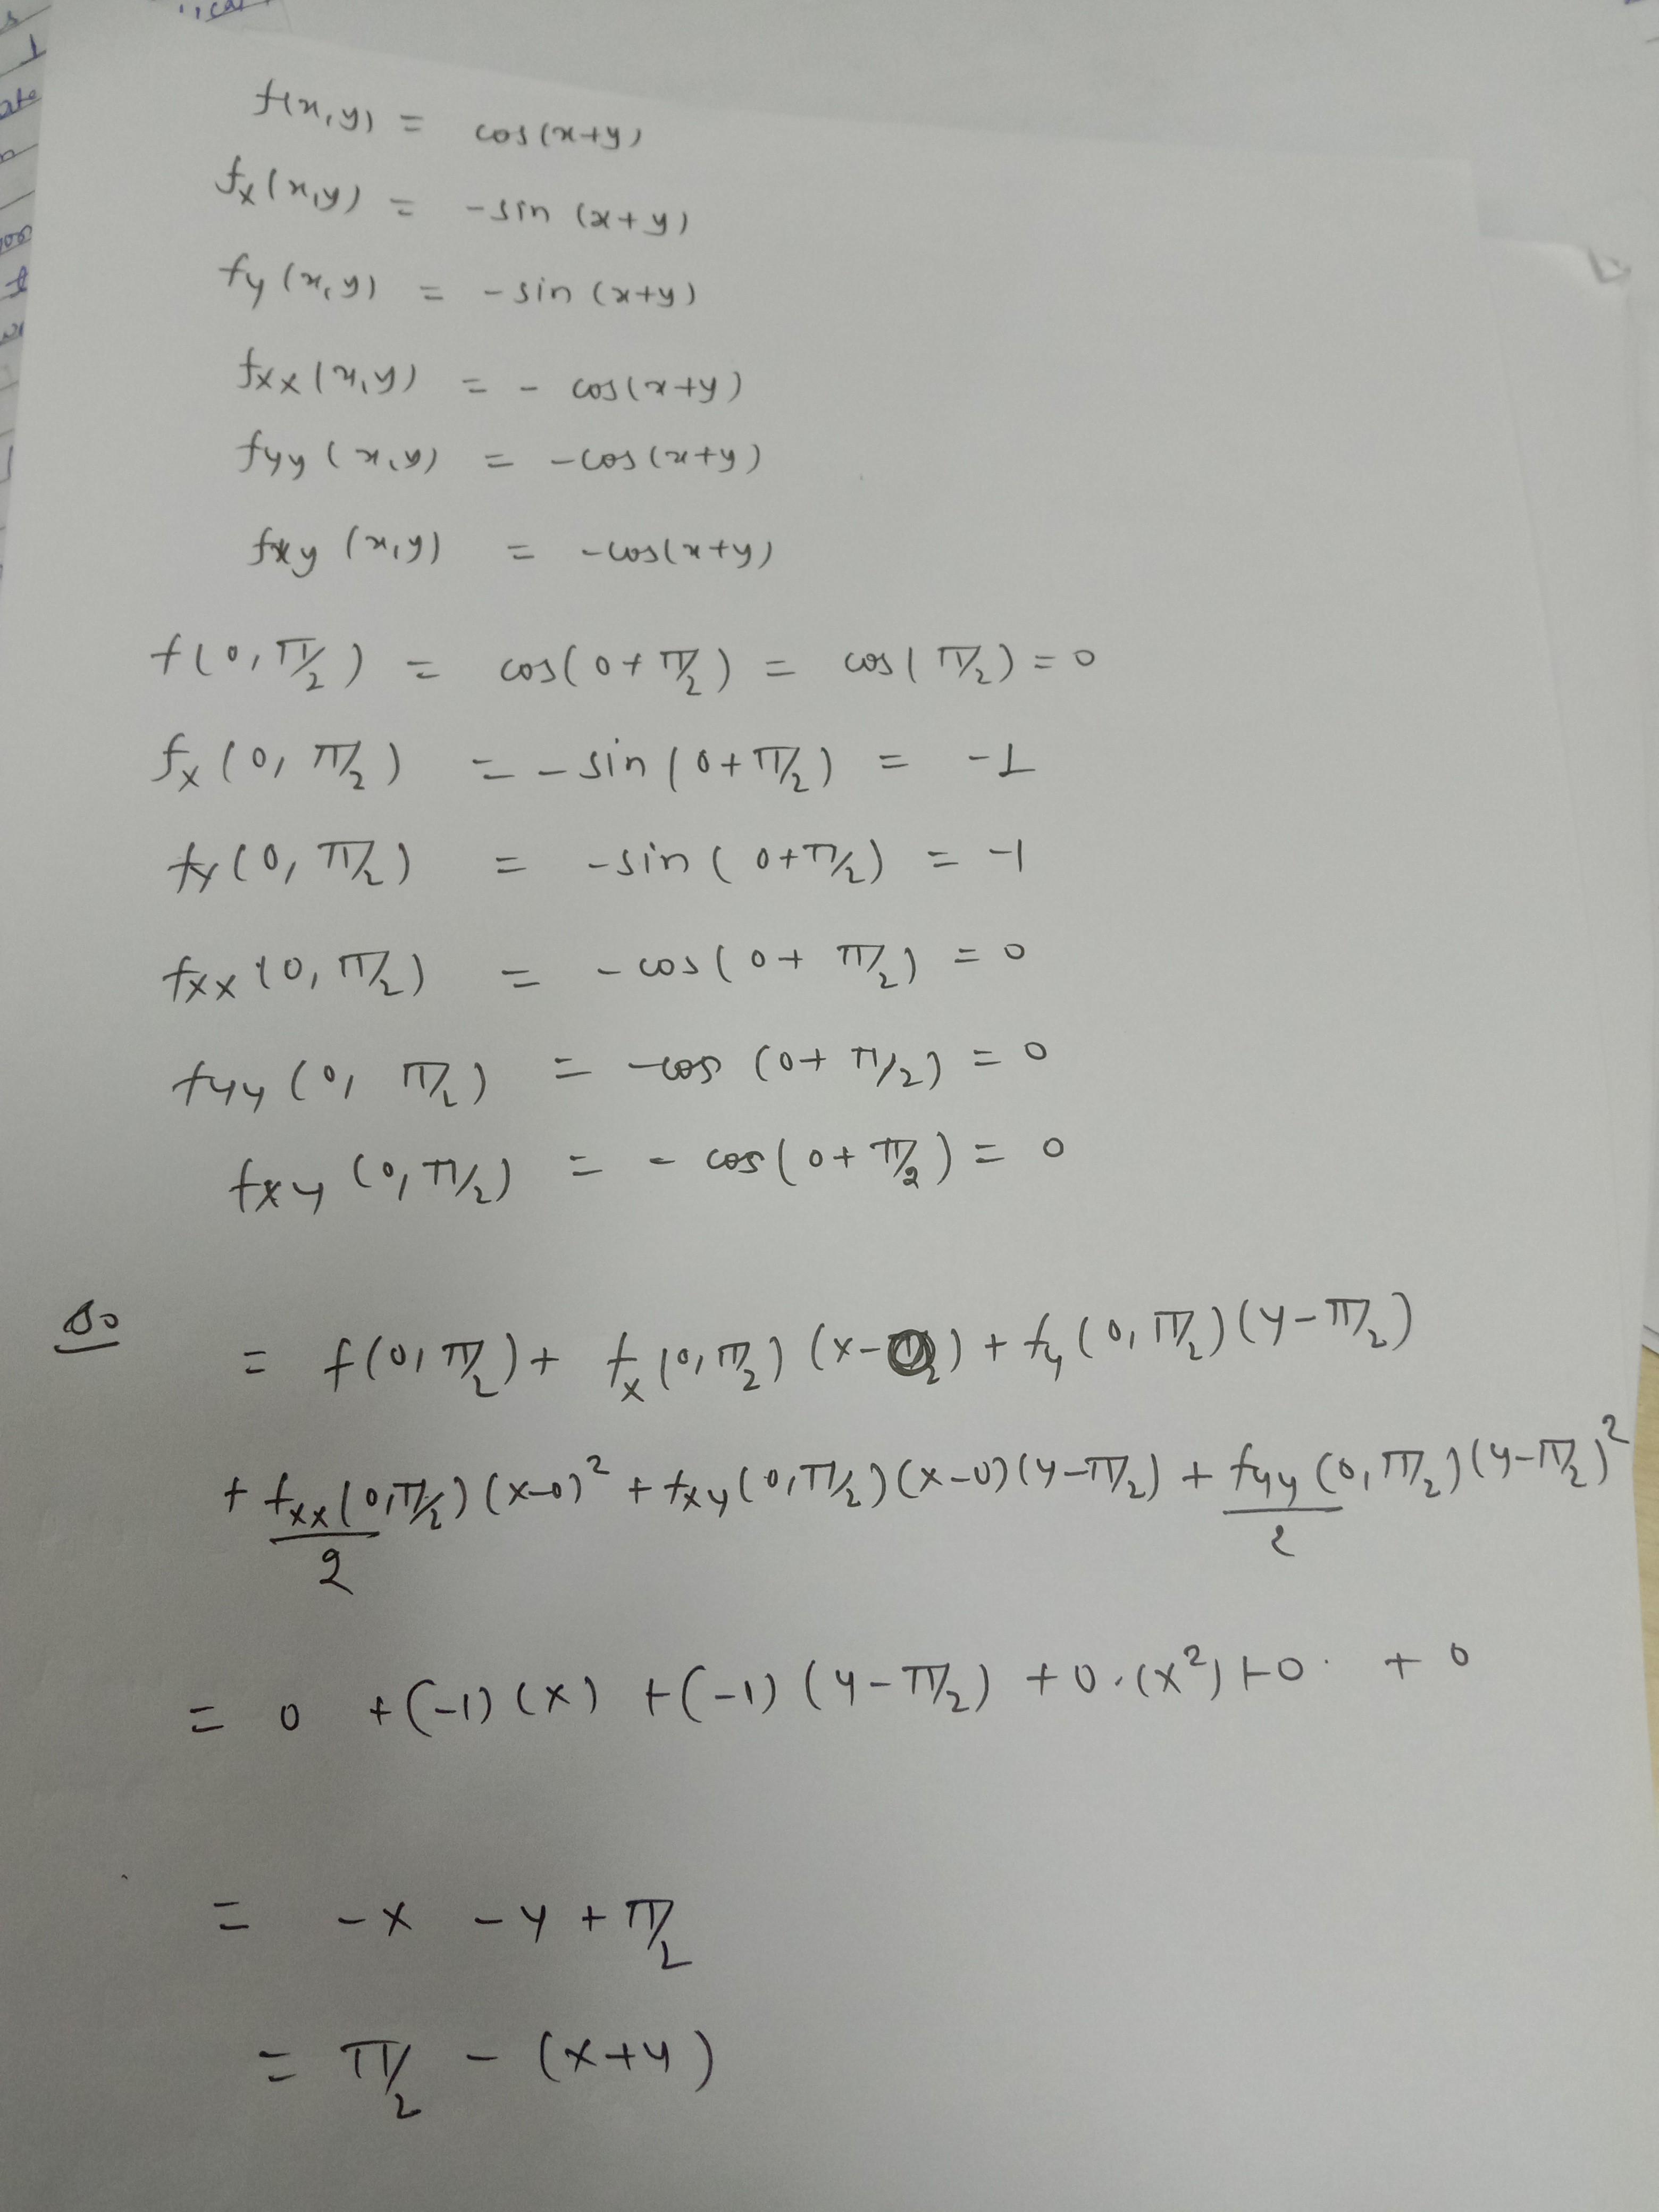 f(x,y) = cos(x+y)
fx(x,y) = -sin (x+y)
fy (x,y) = -sin (x+y)
fxx(x,y) = - cos(x+y)
fyy (x,y) = -cos(x+y)
fxy (x,y) = -cos(x+y)
f(0,π/2) = cos(0+π/2) = cos(π/2)=0
fx (0, π/2) = -sin(0+π/2) = -1
fy(0, π/2) = -sin( 0+π/2) = -1
fxx(0,π/2) = -cos(0+ π/2) = 0
fyy (0, π/2) = -cos (0+ π/2) = 0
fxy (0,π/2) = - cos(0+π/2) = 0
So = f(0,π/2) + fx(0,π/2) (x-0) + fy(0,π/2)(y-π/2)
+ fxx(0,π/2)/2 (x-0)² + fxy(0,π/2)(x-0)(y-π/2) + fyy(0,π/2)/2 (y-π/2)²
= 0 +(-1)(x) +(-1)(y-π/2) +0.(x²)+0. + 0
= -x -y + π/2
= π/2 - (x+y)